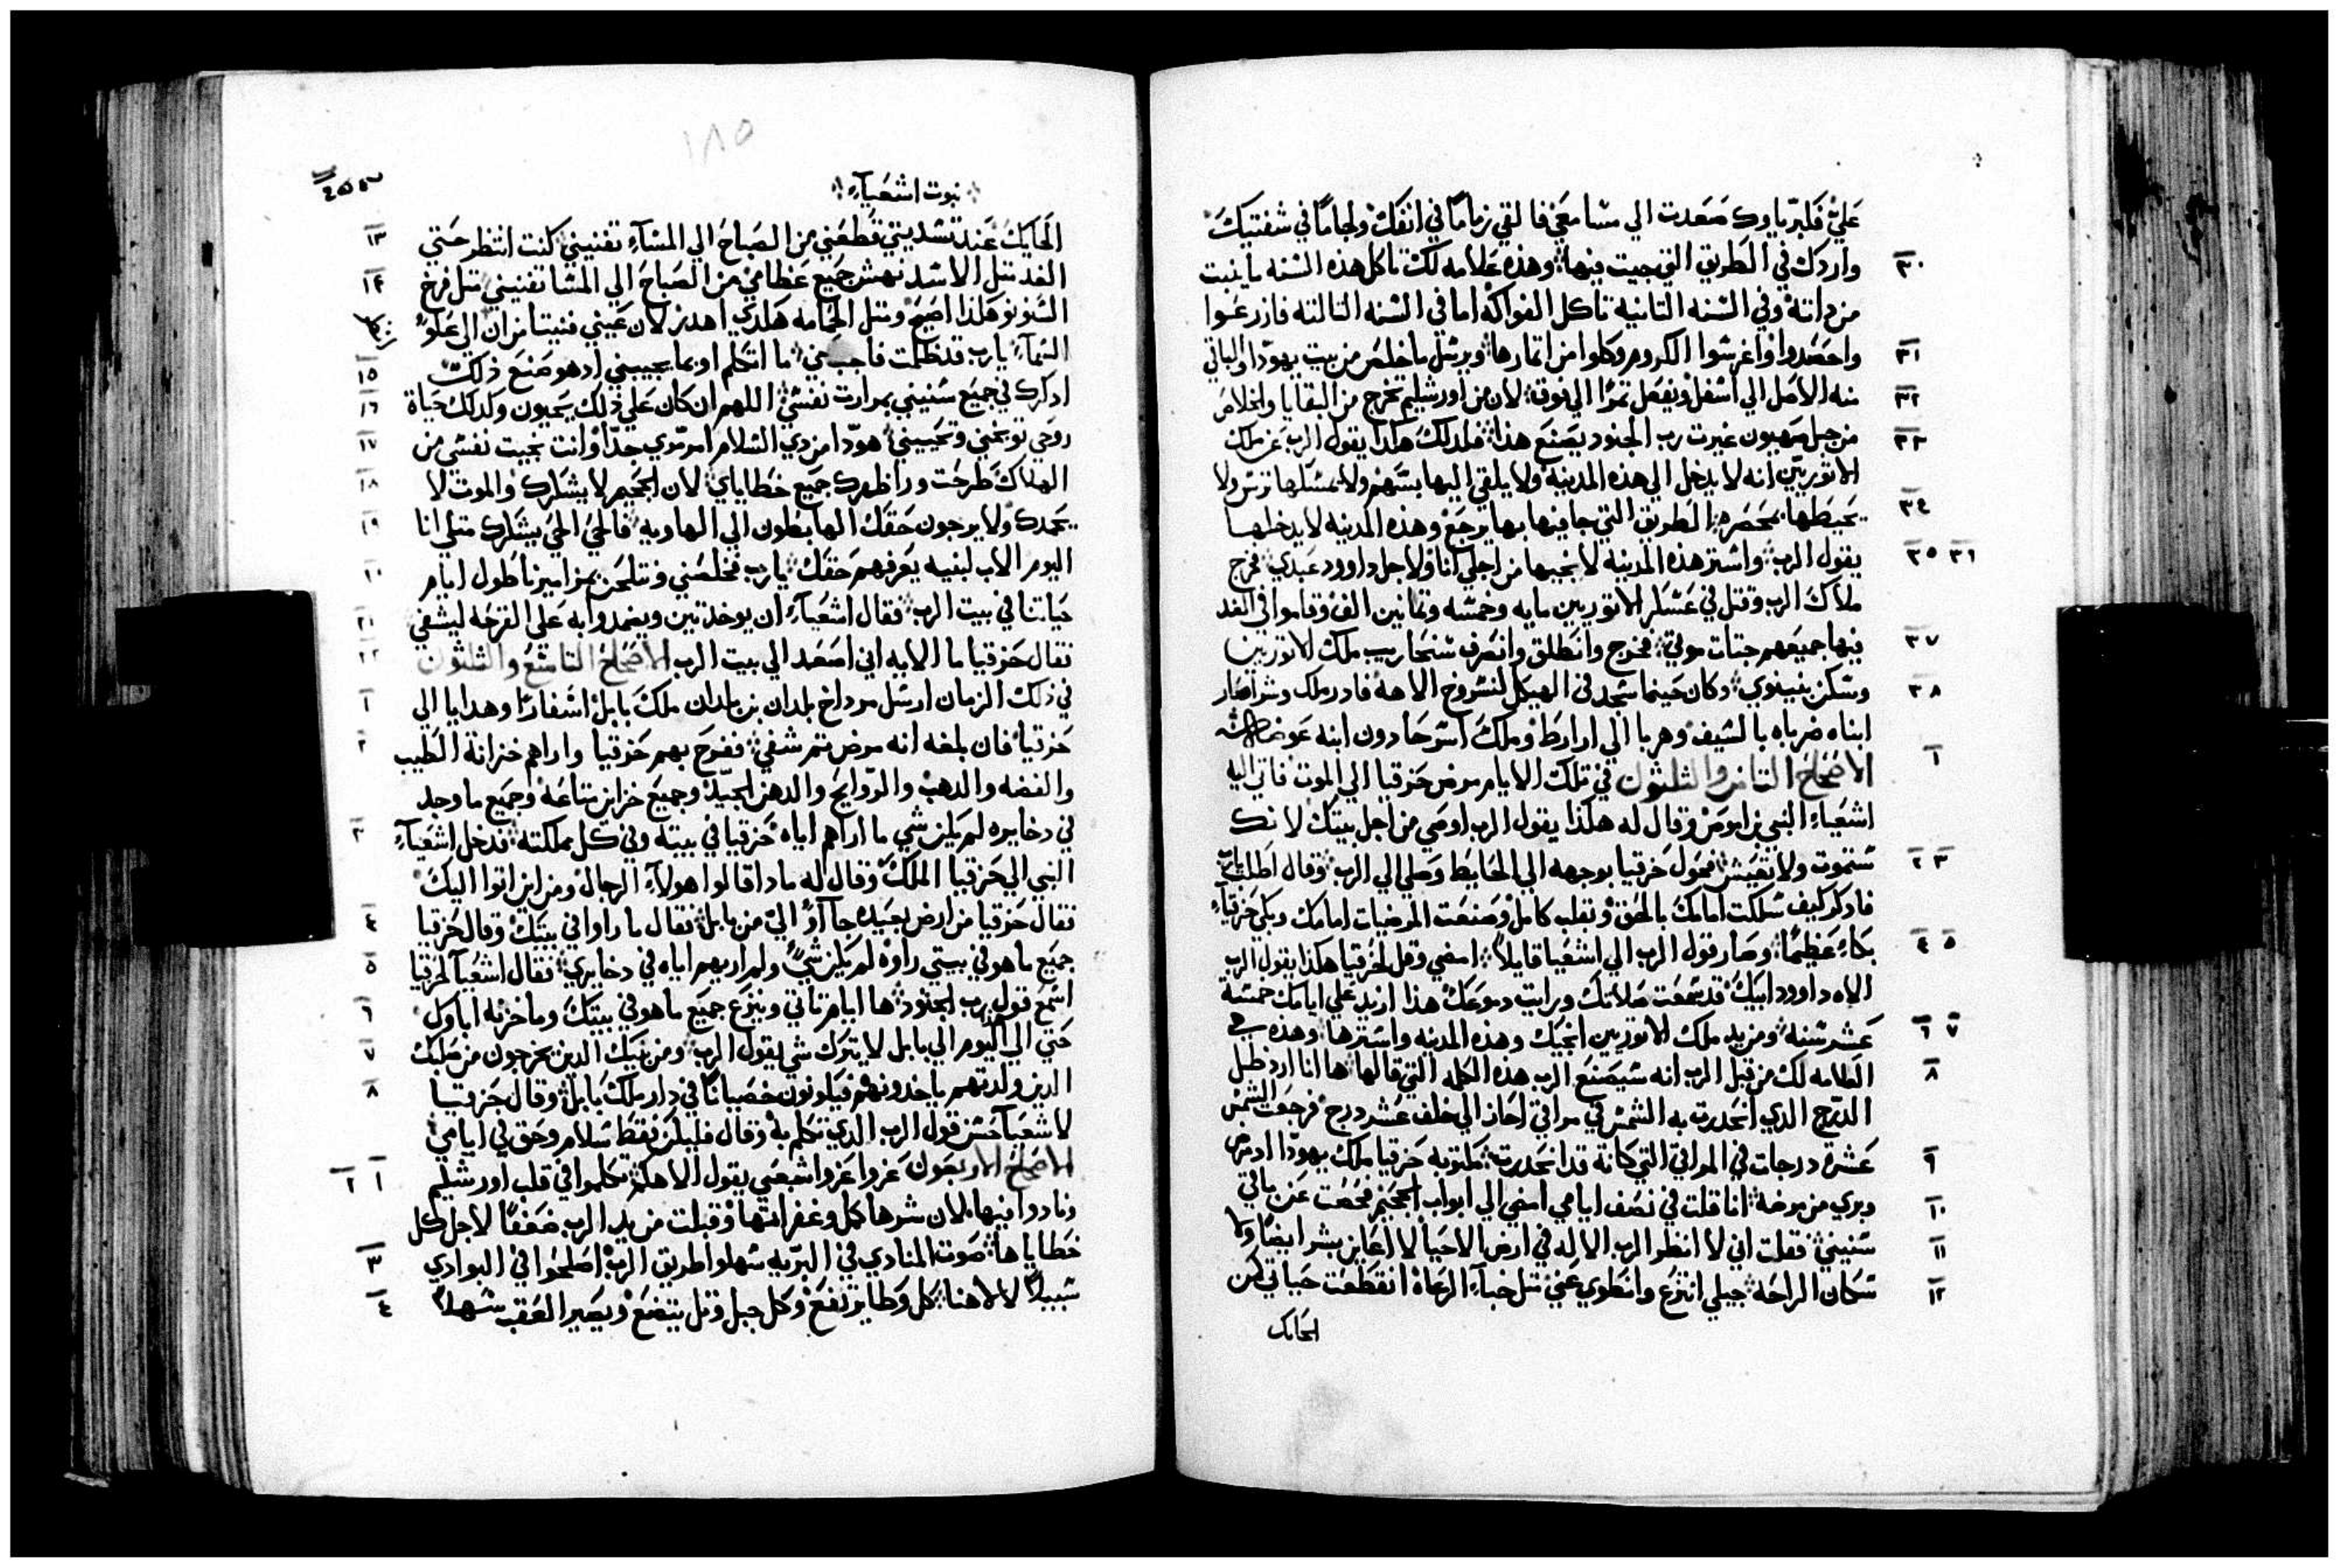 عليّ فكبرياوك صَعَدت الي مسَامعَي فالقي زمامًا في انفكَ ولجامًا في شفتيكَ
٣٠ واردك في الطَريق التي جيت فيها وهذه عَلامه لكَ تاكل هذه السَنه ما ينبت
من داتهْ وفي السَنه التانيه تاكل الفواكهْ اما في السَنه التالته فازرعَوا
٣١ واحصَدوا واغرسَوا الكروم وكلوا من اتمارها ويرسَل ما خلصَ من بيت يهوَدا والباقي
٣٢ منه الاصَل الي اسَفل ويفعَل تمرًا الي فوق لان من اورشليم تخرج من البقايا والخلاص
٣٣ من جبل صَهيون غيرت رب الجنود يصَنع هذا فلدلكَ هكذا يقول الرب عَن ملك
الاتوريّين انه لا يدخل الي هذه المدينه ولا يلقي اليها بسَهم ولا يمسَكها ترسَ ولا
٣٤ يحَيطها بمحَصَره الطَريق التي جا فيها بها يرجعَ وهذه المدينه لا يدخلها
٣٥ ٣٦ يقول الرب واسَتر هذه المدينه لانجيها من اجلي انا ولاجل داوود عَبدي فخرج
ملاكَ الرب وقتل في عَسَكر الاتوريين مايه وخمسَه وتمانين الف وقاموا في الغد
٣٧ فيها جميعَهم جتات موتي فخرج وانطَلق وانصَرف سَنحَاريب ملك الاتوريين
٣٨ وسَكن بنينوي وكان حينما سَجد في الهيكل لنسَروخ الاهه فادرملك وشراصَار
ابناه ضرباه بالسَيف وهربا الي اراراط وملكَ اسَرحَادون ابنه عَوضه
١ الاصَحَاح التامن والتلتون في تلك الايام مرض حَزقيا الي الموت فاتي اليه
اشعَياء النبي بن اموصَ وقال له هكذا يقول الرب اوصَي من اجل بيتكَ لانك
٢ ٣ سَتموت ولا تعَيش فحَول حَزقيا بوجهه الي الحَايط وصَلي الي الرب وقال اطَلب يارب
فادكر كيف سَلكت امامكَ بالحَق وبقلب كامل وصَنعَت المرضيات امامك وبكي حَزقيا
٤ ٥ بكاء عَظيمًا وصَار قول الرب الي اشعَيا قايلاً امضي وقل لحَزقيا هكذا يقول الرب
الاه داوود ابيكَ قد سَمعَت صَلاتكَ ورايت دموعَكَ هذا ازيد عَلي ايامك خمسَة
٦ ٧ عَشر سَنه ومن يد ملك الاتوريين انجيك وهذه المدينه واسَترها وهذه هي
٨ العَلامه لك من قبل الرب انه سَيصَنع الرب هذه الكلمه التي قالها ها انا ارد ظل
الدرج الدي انحَدرت به الشمسَ في مراقي احَاز الي خلف عَشر درج فرجعَت الشمسَ
٩ عَشرة درجات في المراقي التي كانة قد انحَدرت مكتوبه حَزقيا ملك يهوّدا اد مرض
١٠ وبري من مرضهْ انا قلت في نصَف ايامي امضي الي ابواب الجحَيم فحَصَت عَن باقي
١١ سَنيني فقلت اني لا انظر الرب الالاه في ارض الاحَيا لا اعَاين بشر ايضًا ولا
١٢ سَكان الراحَه جيلي انتزعَ وانطَوي عَني متل خباء الرعَاهْ انقطَعَت حَياتي كمن
الحَايك
١٨٥
نبوت اشعَياء
١٣ الحَايكَ عَند تسَديتي قطَعَني من الصَباح الي المسَاء تفنيني كنت انتظر حَتي
١٤ الغد متل الاسَد نهش جميع عَظامي من الصَباح الي المسَا تفنيني متل فرخ
السَنونو هكذا اصَيح ومتل الحَمامه هكدي اهدر لان عَيني فنيتا من ان الي عَلو
السَماء يارب قد ظلمت فاجب عني ما اتكلم او بما يجيبني اد هو صَنع ذلكَ
١٥ ادكرك في جميع سَنيني بمرارت نفسَي
١٦ اللهم ان كان عَلي ذلك يحَيون ولدلك حَياة
١٧ روحَي توبخني وتحَييني هوّدا من دي السَلام امر مري جدًا وانت نجيت نفسَي من
١٨ الهلاكَ طَرحَت ورا ظهرك جميع خطَاياي لان الجحَيم لا يشكرك والموت لا
١٩ يحَمدك ولا يرجون حَقكَ الهابطَون الي الهاويه فالحَي الحَي يشكرك متلي انا
٢٠ اليوم الاب لبنيه يعَرفهم حَقكَ يارب فخلصَني ونتلحَن بمزاميرنا طَول ايام
٢١ حَياتنا في بيت الرب فقال اشعَياء ان يوخد تين ويضمدوا به عَلي القرحَه ليشفي
٢٢ فقال حَزقيا ما الايه اني اصَعَد الي بيت الرب الاصَحَاح التاسَع والتلتون
١ في ذلكَ الزمان ارسَل مرداخ بلدان بن بلدان ملكَ بابل اسَفارًا وهدايا الي
٢ حَزقيا فان بلغه انه مرض تم شفي ففرحَ بهم حَزقيا واراهم خزانة الطَيب
والفضه والدهب والروايح والدهن الجيّد وجميع خزاين متاعَهْ وجميع ما وجد
٣ في دخايره لم يكن شي ما اراهم اياه حَزقيا في بيتهْ وفي كل مملكته فدخل اشعَياء
النبي الي حَزقيا الملكَ وقال له مادا قالوا هولاء الرجال ومن اين اتوا اليكَ
٤ فقال حَزقيا من ارض بعَيده جاآو الي من بابل فقال ما راوا في بيتكَ وقال حَزقيا
٥ جميع ما هو في بيتي راوه لم يكن شيٌ ولم اريهم اياه في دخايري فقال اشعَيا لحَزقيا
٦ اسَمع قول رب الجنود ها ايام تاتي وينزعَ جميع ما هو في بيتكَ وما خزنه اباوك
٧ حَتي الي هذا اليوم الي بابل لا يترك شي يقول الرب ومن بنيك الدين يخرجون من صَلبك
٨ الدين ولدتهم ياخدونهم فيكونون خصَيانًا في دار ملكَ بابل وقال حَزقيا
لاشعَيا حَسَن قول الرب الدي تكلم بهْ وقال فليكن فقط سَلام وحَق في ايامي
١ ٢ الاصَحَاح الاربعَون عَزوا عَزوا شعبي يقول الاهكم تكلموا في قلب اورشليم
ونادوا فيها لان شرها كمل وغفر اتمها وقبلت من يد الرب ضعَفًا لاجل كل
٣ خطَاياها صَوت المنادي في البريه سَهلوا طَريق الرب اصَلحَوا في البوادي
٤ سَبيلاً لالاهنا كل وطَا يرتفعَ وكل جبل وتل يتضعَ ويصَير العَقب سَهلاً